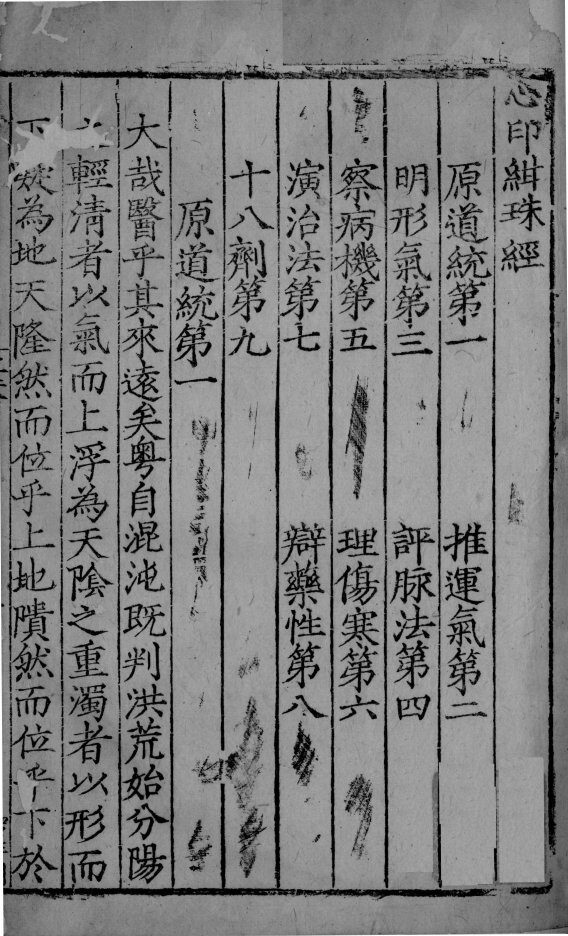 心印紺珠經
原道統第一 推運氣第二
明形氣第三 評脉法第四
察病機第五 理傷寒第六
演治法第七 辯藥性第八
十八劑第九
原道統第一
大哉醫乎其來遠矣粤自混沌既判洪荒始分陽
輕清者以氣而上浮為天陰之重濁者以形而
下凝為地天隆然而位乎上地隤然而位乎下於